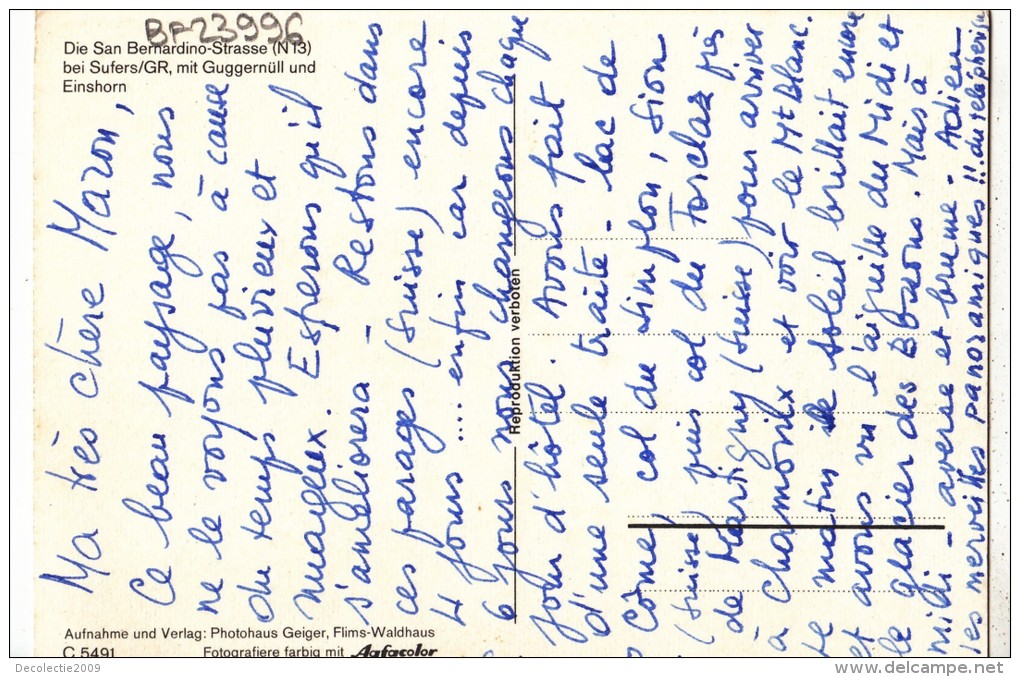 BF23996
Die San Bernardino-Strasse (N 13)
bei Sufers/GR, mit Guggernüll und
Einshorn
Ma très chère Maron,
Ce beau paysage, nous
ne le voyons pas à cause
du temps pluvieux et
nuageux. Espérons qu'il
s'améliorera - Restons dans
ces parages (Suisse) encore
4 jours .... enfin car depuis
6 jours nous changeons chaque
jour d'hôtel. Avons fait
d'une seule traite - lac de
Côme, col du Simplon, Sion
(Suisse) puis col du Forclaz près
de Martigny (Suisse) pour arriver
à chamonix et voir le Mt Blanc.
le matin le soleil brillait encore
et avons vu l'aiguille du Midi et
le glacier des Bossons. Mais à
midi - averse et brume - Adieu
les merveilles panoramiques !! du téléphérique
Reproduktion verboten
Aufnahme und Verlag: Photohaus Geiger, Flims-Waldhaus
C 5491 Fotografiere farbig mit Agfacolor
Decolectie2009
www.delcampe.net